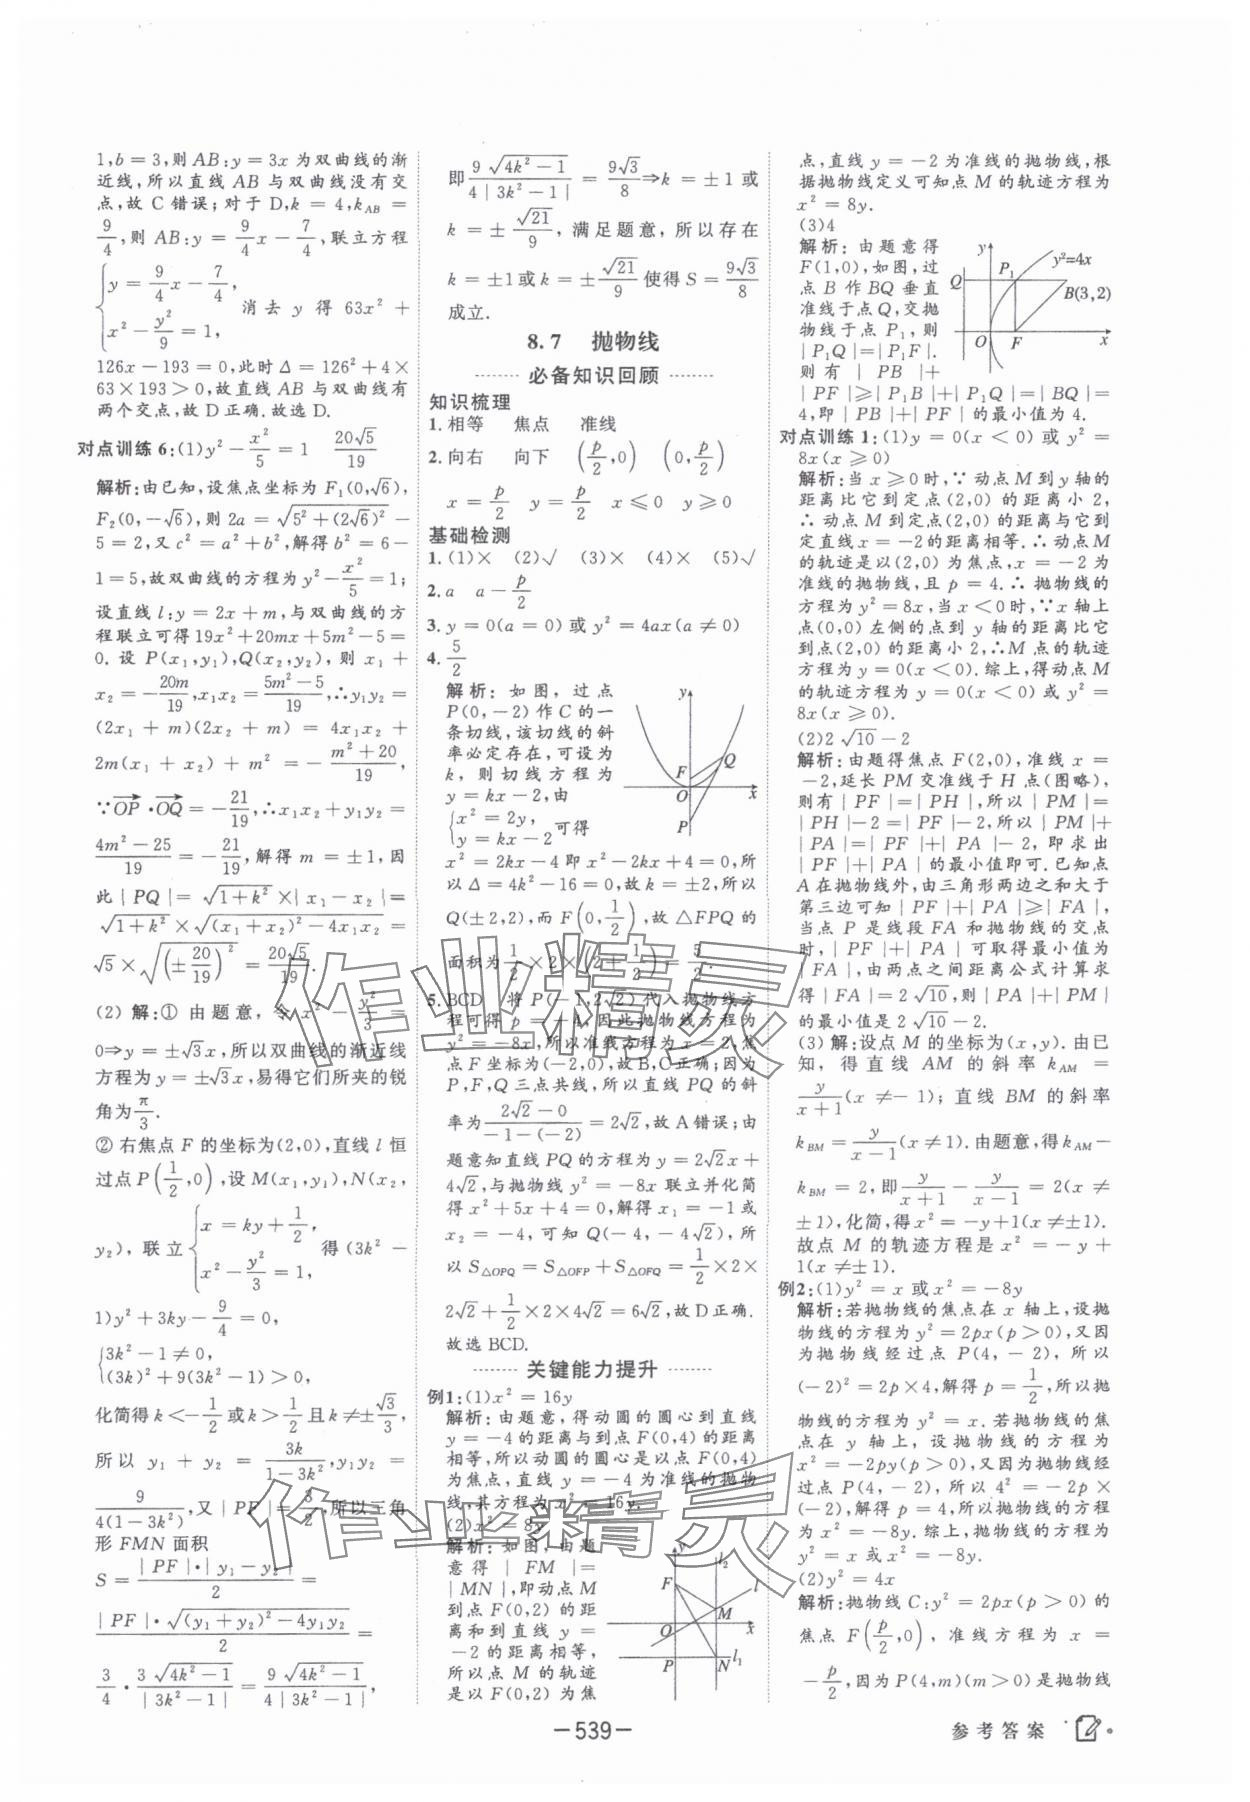 1,b=3,则AB:y=3x为双曲线的渐
近线,所以直线AB与双曲线没有交
点,故C错误;对于D,k=4,k_{AB}=
\frac{9}{4},则AB:y=\frac{9}{4}x-\frac{7}{4},联立方程
{y=\frac{9}{4}x-\frac{7}{4}, x²-\frac{y²}{9}=1, 消去y得63x²+
126x-193=0,此时Δ=126²+4×
63×193>0,故直线AB与双曲线有
两个交点,故D正确.故选D.
对点训练6:(1)y²-\frac{x²}{5}=1 \frac{20√5}{19}
解析:由已知,设焦点坐标为F₁(0,√6),
F₂(0,-√6),则2a=\sqrt{5²+(2√6)²}-
5=2,又c²=a²+b²,解得b²=6-
1=5,故双曲线的方程为y²-\frac{x²}{5}=1;
设直线l:y=2x+m,与双曲线的方
程联立可得19x²+20mx+5m²-5=
0.设P(x₁,y₁),Q(x₂,y₂),则x₁+
x₂=\frac{-20m}{19},x₁x₂=\frac{5m²-5}{19},∴y₁y₂=
(2x₁+m)(2x₂+m)=4x₁x₂+
2m(x₁+x₂)+m²=-\frac{m²+20}{19},
∵\overrightarrow{OP}·\overrightarrow{OQ}=-\frac{21}{19},∴x₁x₂+y₁y₂=
\frac{4m²-25}{19}=-\frac{21}{19},解得m=±1,因
此|PQ|=\sqrt{1+k²}×|x₁-x₂|=
\sqrt{1+k²}×\sqrt{(x₁+x₂)²-4x₁x₂}=
√5×\sqrt{(±\frac{20}{19})²}=\frac{20√5}{19}.
(2)解:①由题意,令x²-\frac{y²}{3}=
0⇒y=±√3x,所以双曲线的渐近线
方程为y=±√3x,易得它们所夹的锐
角为\frac{π}{3}.
②右焦点F的坐标为(2,0),直线l恒
过点P(\frac{1}{2},0),设M(x₁,y₁),N(x₂,
y₂),联立{x=ky+\frac{1}{2}, x²-\frac{y²}{3}=1, 得(3k²-
1)y²+3ky-\frac{9}{4}=0,
{3k²-1≠0,
(3k)²+9(3k²-1)>0,
化简得k<-\frac{1}{2}或k>\frac{1}{2}且k≠±\frac{√3}{3},
所以y₁+y₂=\frac{3k}{1-3k²},y₁y₂=
\frac{9}{4(1-3k²)},又|PF|=\frac{3}{2},所以三角
形FMN面积
S=\frac{|PF|·|y₁-y₂|}{2}=
\frac{|PF|·\sqrt{(y₁+y₂)²-4y₁y₂}}{2}=
\frac{3}{4}·\frac{3\sqrt{4k²-1}}{|3k²-1|}=\frac{9\sqrt{4k²-1}}{4|3k²-1|},
即\frac{9\sqrt{4k²-1}}{4|3k²-1|}=\frac{9√3}{8}⇒k=±1或
k=±\frac{√21}{9},满足题意,所以存在
k=±1或k=±\frac{√21}{9}使得S=\frac{9√3}{8}
成立.
8.7 抛物线
必备知识回顾
知识梳理
1.相等 焦点 准线
2.向右 向下 (\frac{p}{2},0) (0,\frac{p}{2})
x=\frac{p}{2} y=\frac{p}{2} x≤0 y≥0
基础检测
1.(1)× (2)√ (3)× (4)× (5)√
2.a a-\frac{p}{2}
3.y=0(a=0)或y²=4ax(a≠0)
4.\frac{5}{2}
解析:如图,过点
P(0,-2)作C的一
条切线,该切线的斜
率必定存在,可设为
k,则切线方程为
y=kx-2,由
{x²=2y, y=kx-2 可得
y
F
Q
O
x
P
x²=2kx-4即x²-2kx+4=0,所
以Δ=4k²-16=0,故k=±2,所以
Q(±2,2),而F(0,\frac{1}{2}),故△FPQ的
面积为\frac{1}{2}×2×(2+\frac{1}{2})=\frac{5}{2}.
5.BCD 将P(-1,2√2)代入抛物线方
程可得p=+4.因此抛物线方程为
y²=-8x,所以准线方程为x=2,焦
点F坐标为(-2,0),故B,C正确;因为
P,F,Q三点共线,所以直线PQ的斜
率为\frac{2√2-0}{-1-(-2)}=2√2,故A错误;由
题意知直线PQ的方程为y=2√2x+
4√2,与抛物线y²=-8x联立并化简
得x²+5x+4=0,解得x₁=-1或
x₂=-4,可知Q(-4,-4√2),所
以S_{△OPQ}=S_{△OFP}+S_{△OFQ}=\frac{1}{2}×2×
2√2+\frac{1}{2}×2×4√2=6√2,故D正确.
故选BCD.
关键能力提升
例1:(1)x²=16y
解析:由题意,得动圆的圆心到直线
y=-4的距离与到点F(0,4)的距离
相等,所以动圆的圆心是以点F(0,4)
为焦点,直线y=-4为准线的抛物
线,其方程为x²=16y.
(2)x²=8y
解析:如图,由题
意得|FM|=
|MN|,即动点M
到点F(0,2)的距
离和到直线y=
-2的距离相等,
所以点M的轨迹
是以F(0,2)为焦
y
l₂
F
l
M
O
x
P
N
l₁
点,直线y=-2为准线的抛物线,根
据抛物线定义可知点M的轨迹方程为
x²=8y.
(3)4
解析:由题意得
F(1,0),如图,过
点B作BQ垂直
准线于点Q,交抛
物线于点P₁,则
|P₁Q|=|P₁F|.
则有|PB|+
y
P₁
y²=4x
Q
B(3,2)
O
F
x
|PF|≥|P₁B|+|P₁Q|=|BQ|=
4,即|PB|+|PF|的最小值为4.
对点训练1:(1)y=0(x<0)或y²=
8x(x≥0)
解析:当x≥0时,∵动点M到y轴的
距离比它到定点(2,0)的距离小2,
∴动点M到定点(2,0)的距离与它到
定直线x=-2的距离相等.∴动点M
的轨迹是以(2,0)为焦点,x=-2为
准线的抛物线,且p=4.∴抛物线的
方程为y²=8x,当x<0时,∵x轴上
点(0,0)左侧的点到y轴的距离比它
到点(2,0)的距离小2,∴M点的轨迹
方程为y=0(x<0).综上,得动点M
的轨迹方程为y=0(x<0)或y²=
8x(x≥0).
(2)2√10-2
解析:由题得焦点F(2,0),准线x=
-2,延长PM交准线于H点(图略),
则有|PF|=|PH|,所以|PM|=
|PH|-2=|PF|-2,所以|PM|+
|PA|=|PF|+|PA|-2,即求出
|PF|+|PA|的最小值即可.已知点
A在抛物线外,由三角形两边之和大于
第三边可知|PF|+|PA|≥|FA|,
当点P是线段FA和抛物线的交点
时,|PF|+|PA|可取得最小值为
|FA|,由两点之间距离公式计算求
得|FA|=2√10,则|PA|+|PM|
的最小值是2√10-2.
(3)解:设点M的坐标为(x,y).由已
知,得直线AM的斜率k_{AM}=
\frac{y}{x+1}(x≠-1);直线BM的斜率
k_{BM}=\frac{y}{x-1}(x≠1).由题意,得k_{AM}-
k_{BM}=2,即\frac{y}{x+1}-\frac{y}{x-1}=2(x≠
±1),化简,得x²=-y+1(x≠±1).
故点M的轨迹方程是x²=-y+
1(x≠±1).
例2:(1)y²=x或x²=-8y
解析:若抛物线的焦点在x轴上,设抛
物线的方程为y²=2px(p>0),又因
为抛物线经过点P(4,-2),所以
(-2)²=2p×4,解得p=\frac{1}{2},所以抛
物线的方程为y²=x.若抛物线的焦
点在y轴上,设抛物线的方程为
x²=-2py(p>0),又因为抛物线经
过点P(4,-2),所以4²=-2p×
(-2),解得p=4,所以抛物线的方程
为x²=-8y.综上,抛物线的方程为
y²=x或x²=-8y.
(2)y²=4x
解析:抛物线C:y²=2px(p>0)的
焦点F(\frac{p}{2},0),准线方程为x=
-\frac{p}{2},因为P(4,m)(m>0)是抛物线
-539-
参考答案
作业精灵
作业精灵